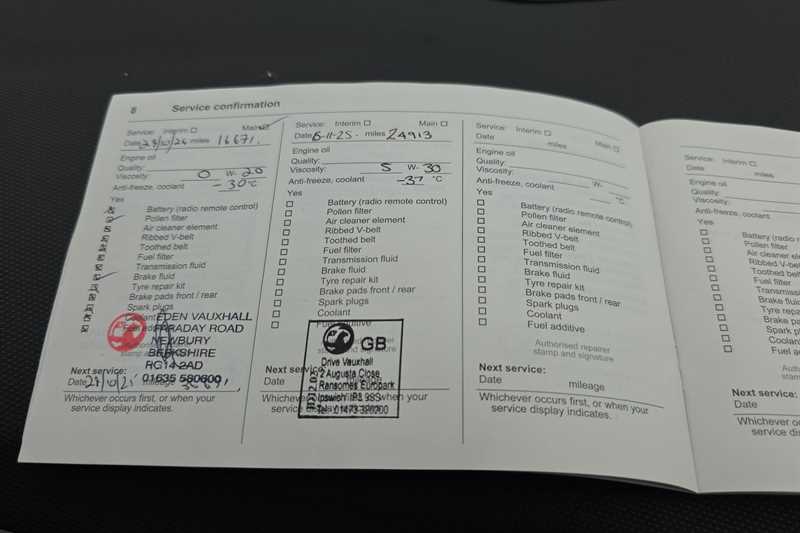 8 Service confirmation
Service: Interim Main
Date 28/10/24 miles 16671.
Engine oil
Quality:
Viscosity: 0 W- 20
Anti-freeze, coolant -30 °C
Yes
Battery (radio remote control)
Pollen filter
Air cleaner element
Ribbed V-belt
Toothed belt
Fuel filter
Transmission fluid
Brake fluid
Tyre repair kit
Brake pads front / rear
Spark plugs
Coolant
EDEN VAUXHALL
FARADAY ROAD
NEWBURY
BERKSHIRE
RG14 2AD
01635 580600
stamp and
Next service:
Date mileage
Whichever occurs first, or when your
service display indicates.
Service: Interim Main
Date 6-11-25. miles 24913
Engine oil
Quality:
Viscosity: 5 W- 30
Anti-freeze, coolant -37 °C
Yes
Battery (radio remote control)
Pollen filter
Air cleaner element
Ribbed V-belt
Toothed belt
Fuel filter
Transmission fluid
Brake fluid
Tyre repair kit
Brake pads front / rear
Spark plugs
Coolant
Fuel additive
GB
Drive Vauxhall
2 Augusta Close
Ransomes Europark
Ipswich IP3 9SS
Tel: 01473
Next service:
Date
Whichever occurs first, or when your
service display indicates.
Service: Interim Main
Date miles
Engine oil
Quality:
Viscosity: W-
Anti-freeze, coolant °C
Yes
Battery (radio remote control)
Pollen filter
Air cleaner element
Ribbed V-belt
Toothed belt
Fuel filter
Transmission fluid
Brake fluid
Tyre repair kit
Brake pads front / rear
Spark plugs
Coolant
Fuel additive
Authorised repairer
stamp and signature
Next service:
Date mileage
Whichever occurs first, or when your
service display indicates.
Service: Interim
Date miles
Engine oil
Quality:
Viscosity:
Anti-freeze, coolant
Yes
Battery (radio
Pollen filter
Air cleaner elem
Ribbed V-belt
Toothed belt
Fuel filter
Transmission
Brake fluid
Tyre repa
Brake pa
Spark p
Coolant
Fuel ad
Autho
stamp
Next service:
Date
Whichever occurs
service di